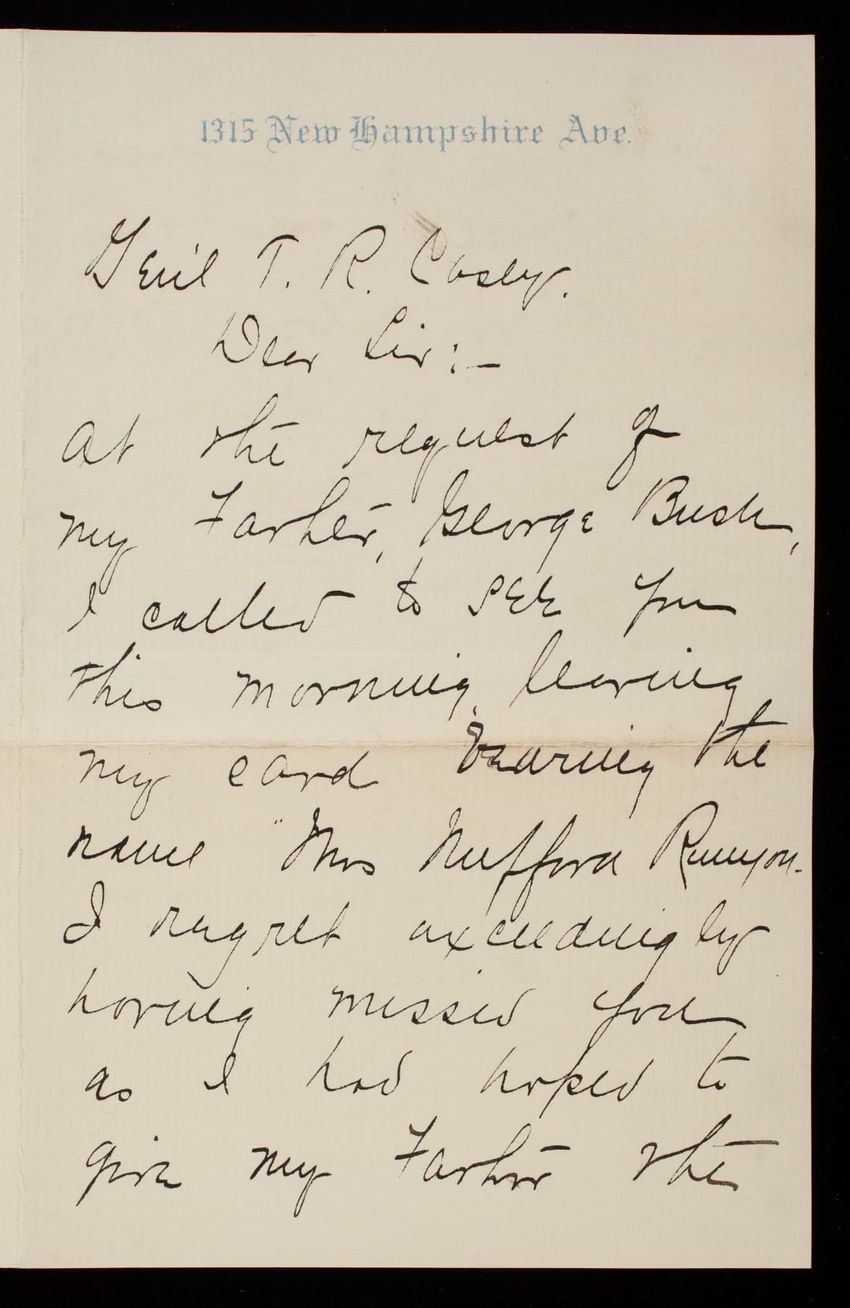 1315 New Hampshire Ave.
Gen'l T. R. Casey.
Dear Sir:—
At the request of
my Father, George Bush,
I called to see you
this morning, leaving
my card bearing the
name "Mrs Mefford Runyon.
I regret exceedingly
having missed you
as I had hoped to
give my Father the